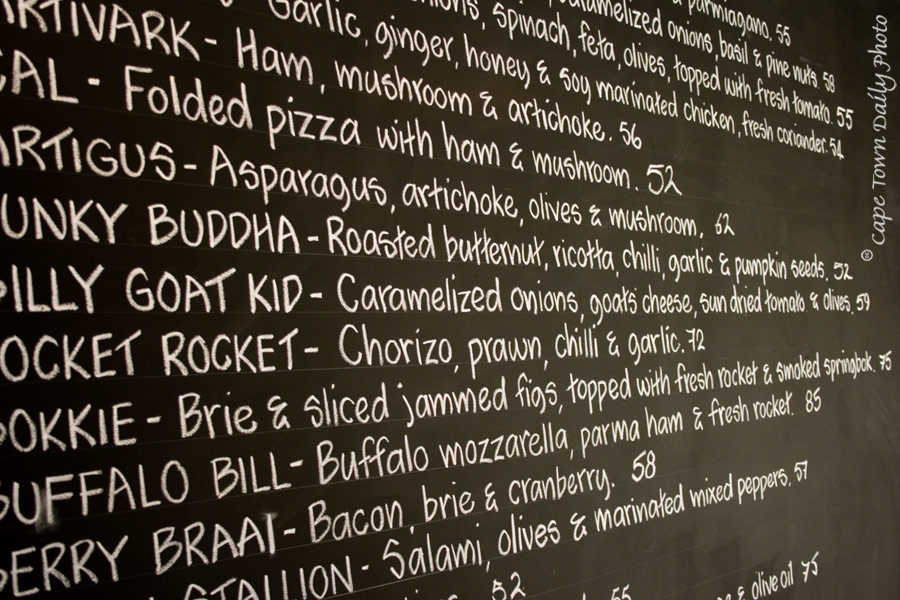 parmiagano. 55
caramelized onions, basil & pine nuts. 58
spinach, feta, olives, topped with fresh tomato. 55
Garlic, ginger, honey & soy marinated chicken, fresh coriander. 54
ARTIVARK - Ham, mushroom & artichoke. 56
CAL - Folded pizza with ham & mushroom. 52
ARTIGUS - Asparagus, artichoke, olives & mushroom. 62
UNKY BUDDHA - Roasted butternut, ricotta, chilli, garlic & pumpkin seeds. 52
BILLY GOAT KID - Caramelized onions, goats cheese, sun dried tomato & olives. 59
OCKET ROCKET - Chorizo, prawn, chilli & garlic. 72
BOKKIE - Brie & sliced jammed figs, topped with fresh rocket & smoked springbok. 75
BUFFALO BILL - Buffalo mozzarella, parma ham & fresh rocket. 85
BERRY BRAAI - Bacon, brie & cranberry. 58
STALLION - Salami, olives & marinated mixed peppers. 57
52
55
& olive oil 75
© Cape Town Daily Photo